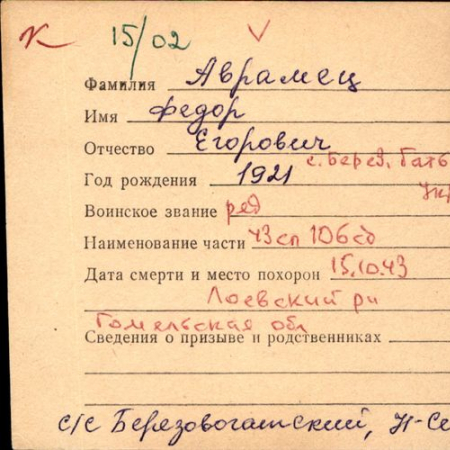 К 15/02 V
Фамилия Аврамец
Имя Федор
Отчество Егорович
с. Берез. Гать
Год рождения 1921
Воинское звание ряд
Наименование части 43сп 106сд
Дата смерти и место похорон 15.10.43
Лоевский рн
Гомельская обл
Сведения о призыве и родственниках
с/с Березовогатский, Н-Се